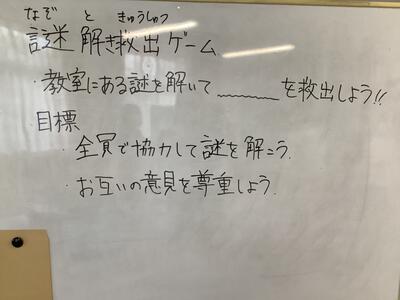 なぞ と きゅうしゅつ
謎解き救出ゲーム
・教室にある謎を解いて______を救出しよう!!
目標
・全員で協力して謎を解こう.
・お互いの意見を尊重しよう.